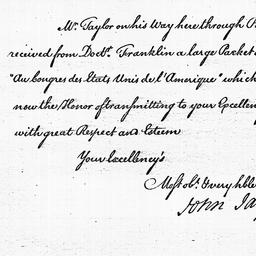 Mr. Taylor on his Way here through
received from Doctr. Franklin a large Packet
"Au Congres des Etats Unis de l'Amerique" which
now the Honor of transmitting to your Excellency
with great Respect and Esteem
Your Excellency's
Most obt. & very hble
John Ja